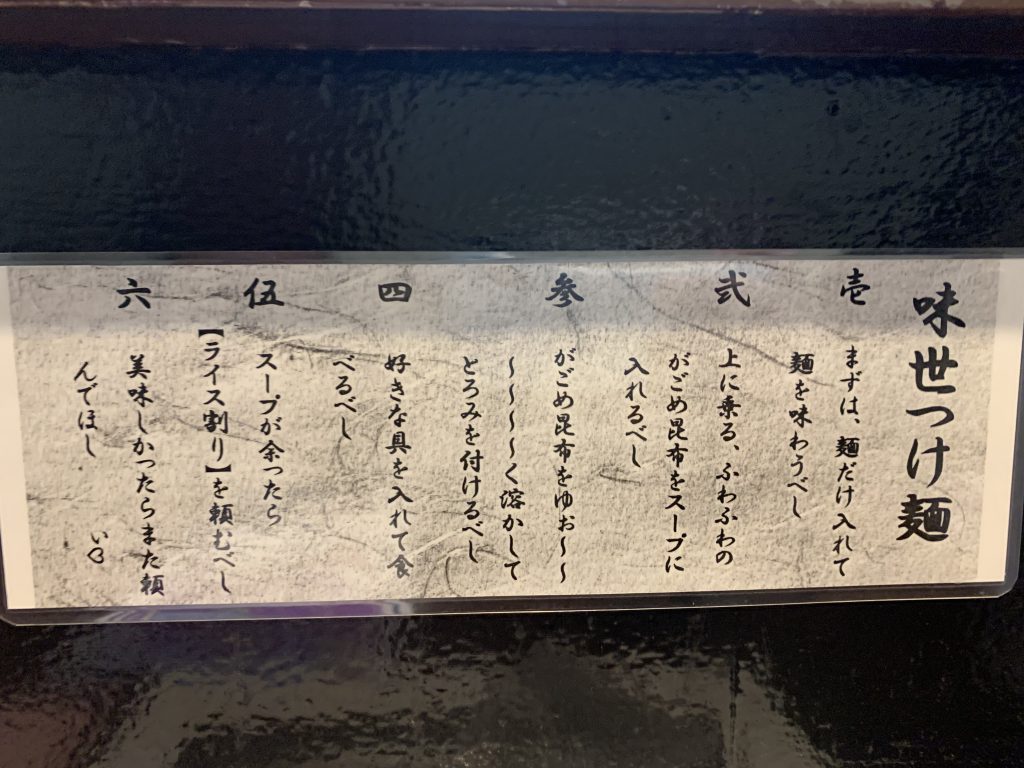 味世つけ麺
壱
まずは、麺だけ入れて
麺を味わうべし
弐
上に乗る、ふわふわの
がごめ昆布をスープに
入れるべし
参
がごめ昆布をゆぉ～～
～～～～く溶かして
とろみを付けるべし
四
好きな具を入れて食
べるべし
伍
スープが余ったら
【ライス割り】を頼むべし
六
美味しかったらまた頼
んでほし　　い♡